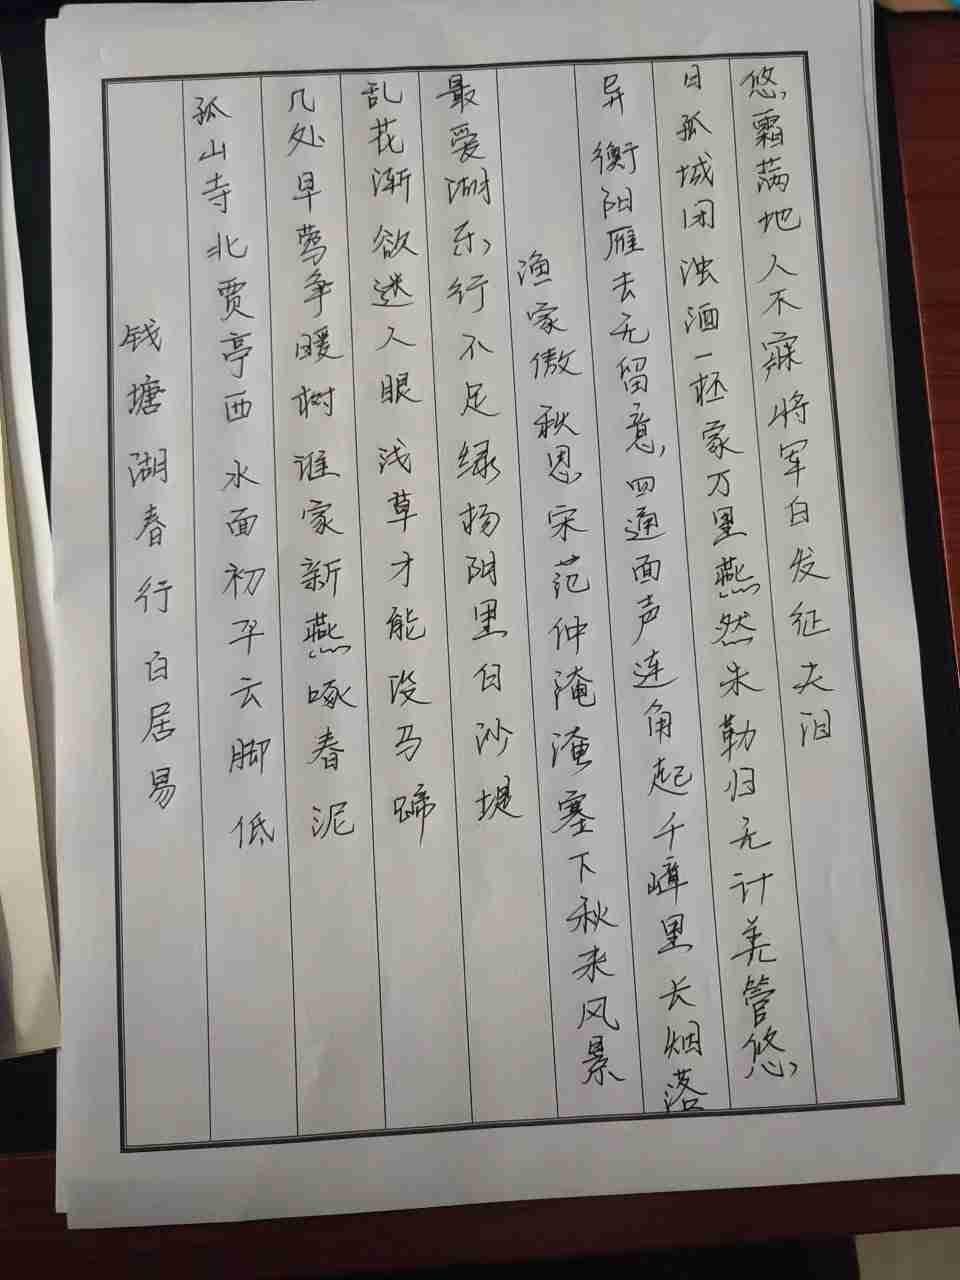 钱塘湖春行白居易
孤山寺北贾亭西水面初平云脚低
几处早莺争暖树谁家新燕啄春泥
乱花渐欲迷人眼浅草才能没马蹄
最爱湖东行不足绿杨阴里白沙堤
渔家傲秋思宋范仲淹淹塞下秋来风景
异衡阳雁去无留意四通面声连角起千嶂里长烟落
日孤城闭浊酒一杯家万里燕然未勒归无计羌管悠
悠霜满地人不寐将军白发征夫泪